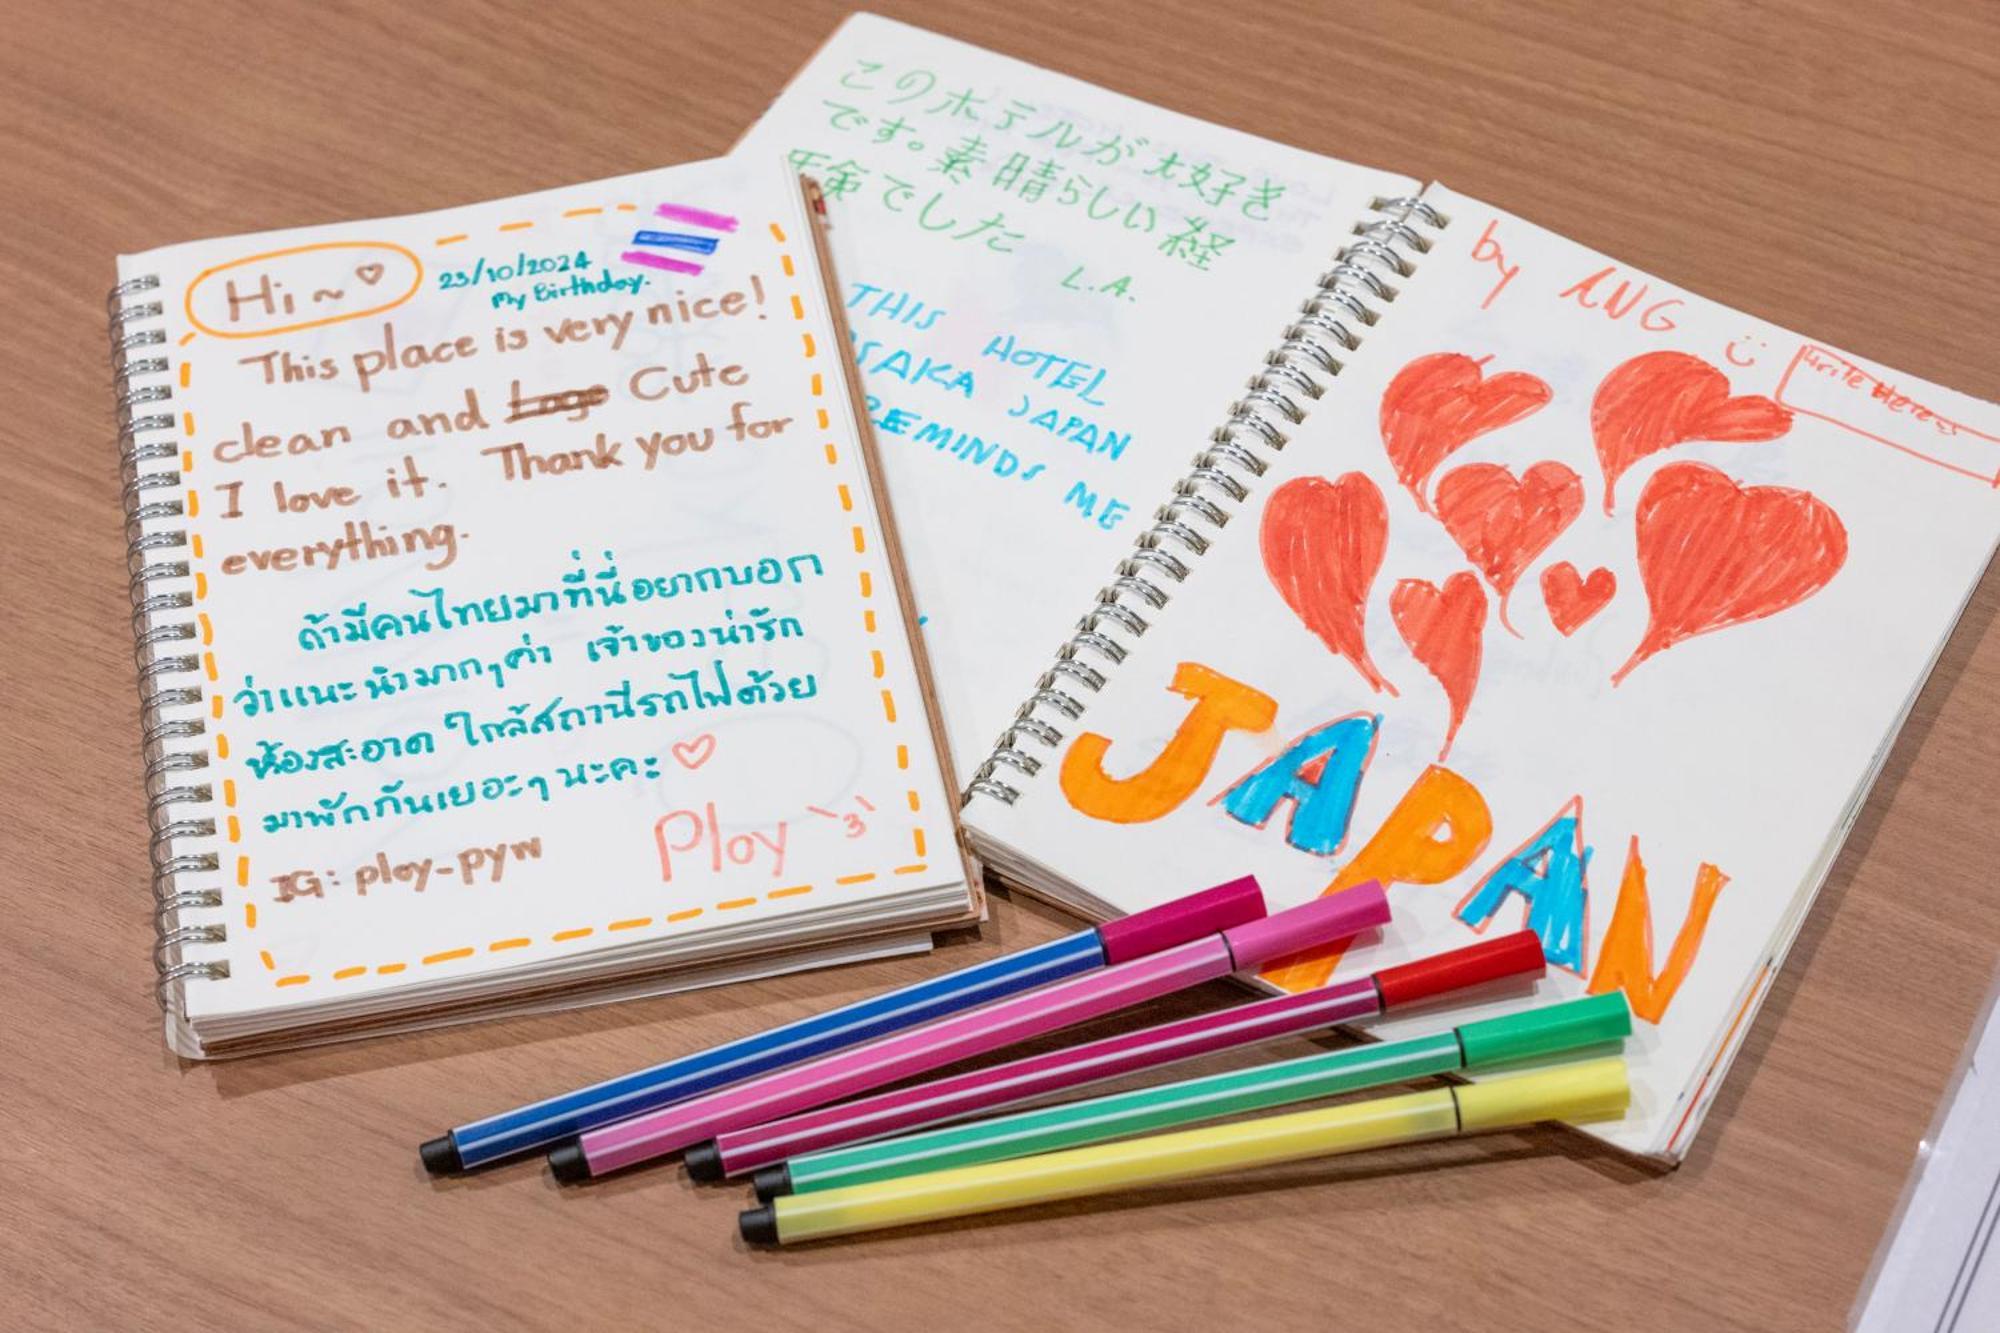 Hi ~ ♡
23/10/2024
My Birthday.
This place is very nice!
clean and Cute
I love it. Thank you for
everything.
ถ้ามีคนไทยมาที่นี่อยากบอก
ว่าแนะนำมากๆค่า เจ้าของน่ารัก
ห้องสะอาด ใกล้สถานีรถไฟด้วย
มาพักกันเยอะๆนะคะ ♡
Ploy
IG: ploy-pyw
このホテルが大好き
です。素晴らしい経
験でした
L.A.
THIS HOTEL
OSAKA JAPAN
REMINDS ME
by ANG
Write Here
JAPAN